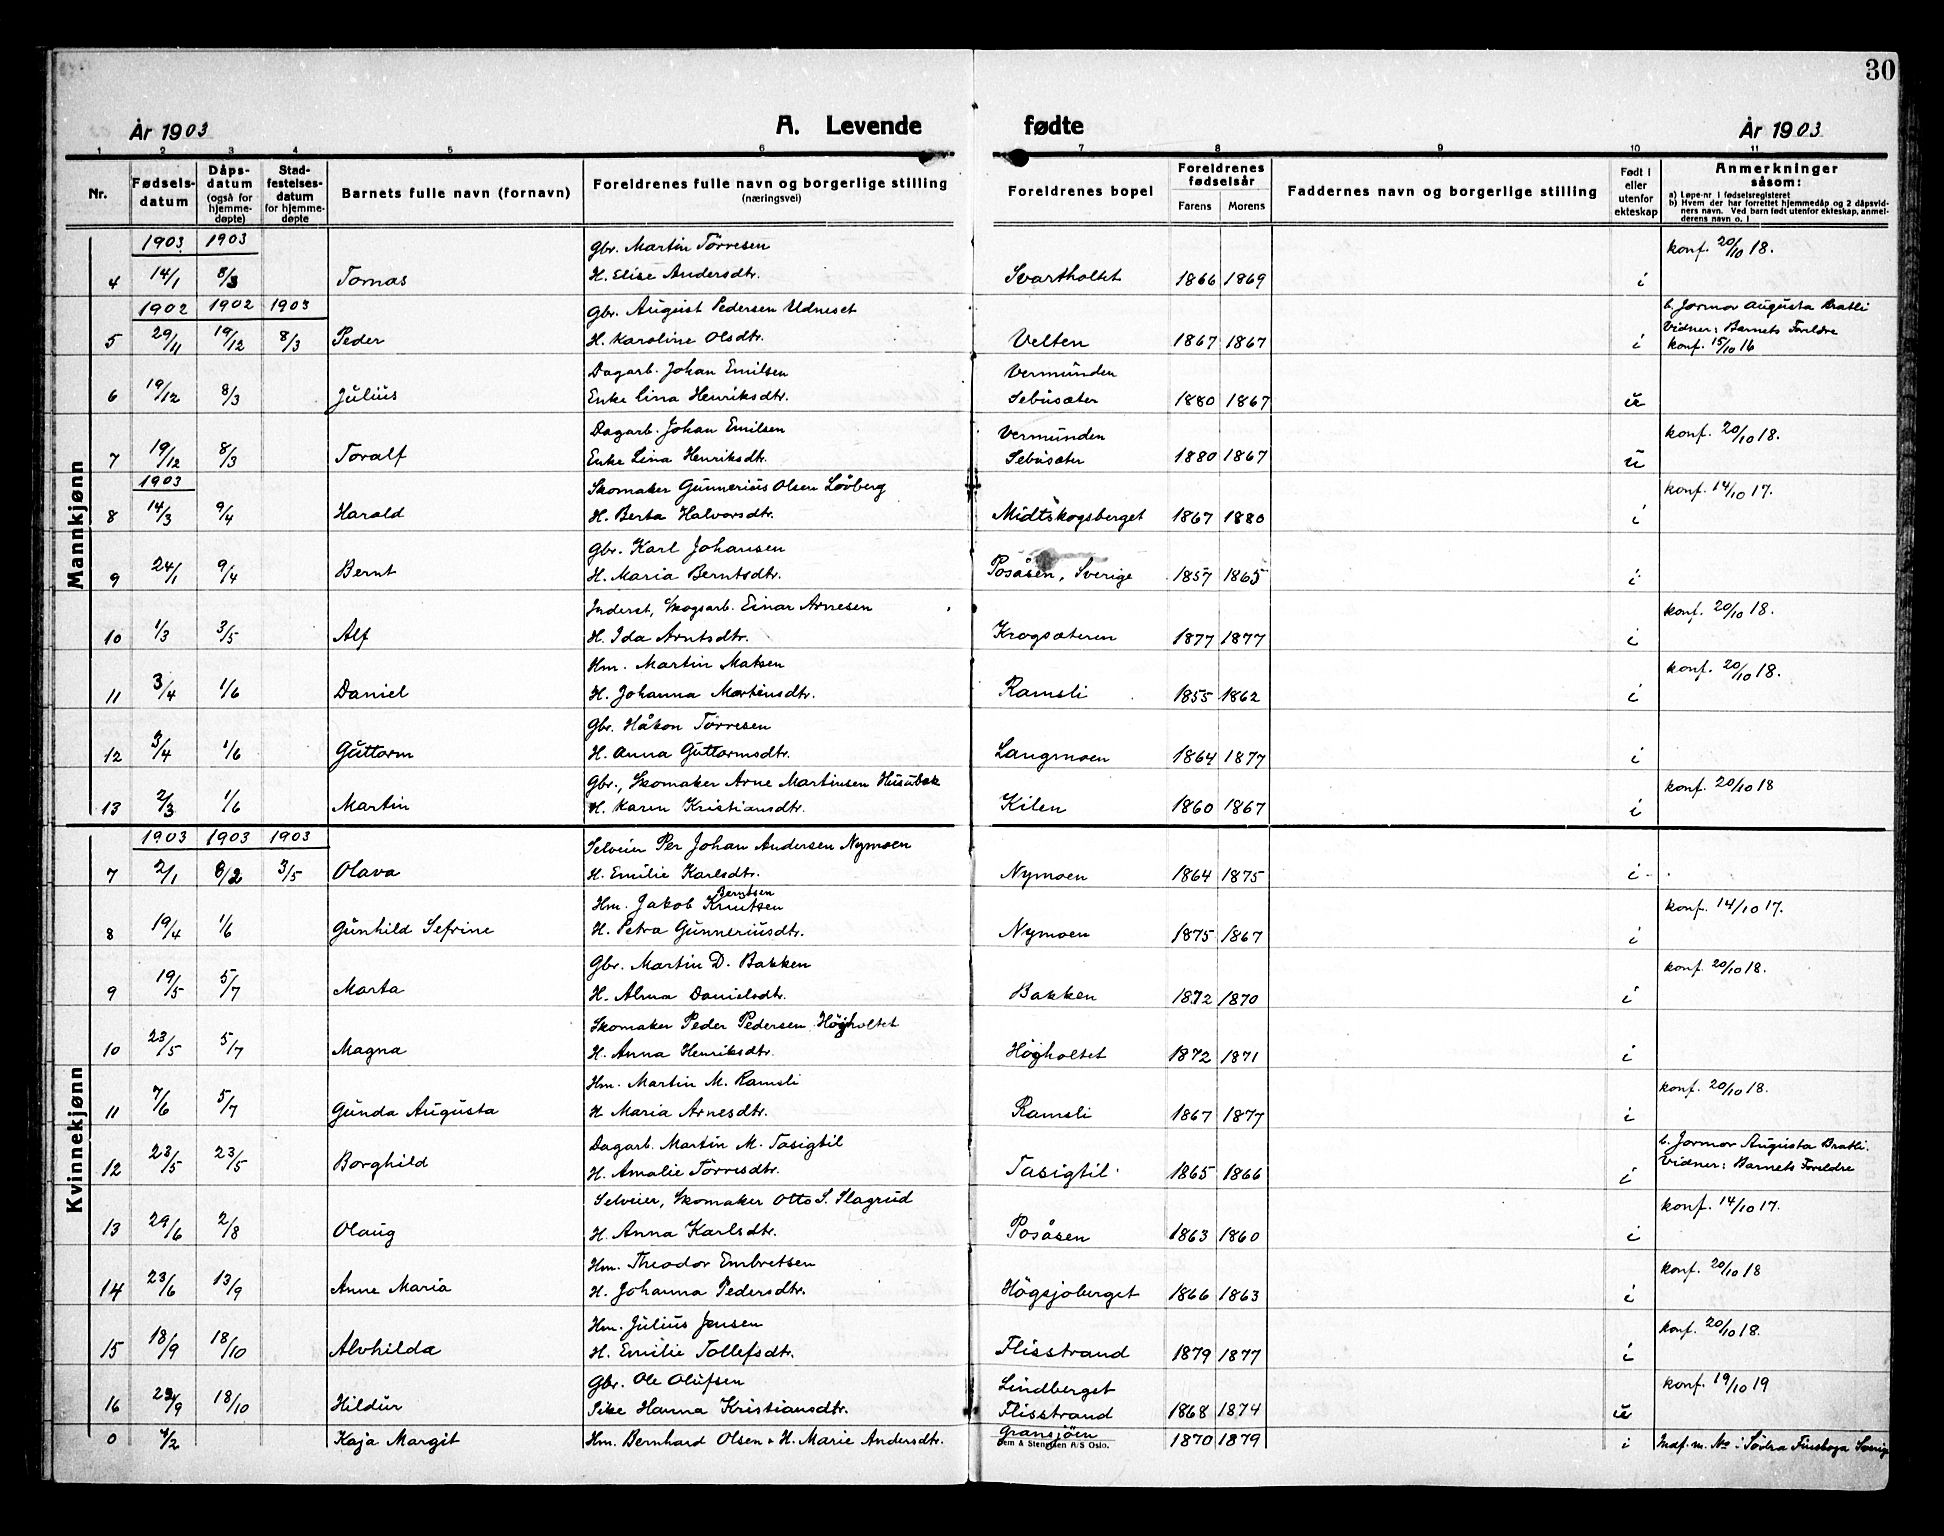 30
År 1903 A. Levende fødte År 1903
1 2 3 4 5 6 7 8 9 10 11
Nr. Fødsels-datum Dåps-datum (også for hjemme-døpte) Stad-festelses-datum for hjemme-døpte Barnets fulle navn (fornavn) Foreldrenes fulle navn og borgerlige stilling (næringsvei) Foreldrenes bopel Foreldrenes fødselsår Farens Morens Faddernes navn og borgerlige stilling Født i eller utenfor ekteskap Anmerkninger såsom: a) Løpe-nr. i fødselsregisteret b) Hvem der har forrettet hjemmedåp og 2 dåpsvidners navn. Ved barn født utenfor ekteskap, anmelderens navn o. l
Mannkjønn
1903 1903 Gbr. Martin Törresen konf. 20/10 18.
4 14/1 8/3 Tomas H. Elise Andersdtr. Svartholtet 1866 1869 i
1902 1902 1903 Gbr. August Pedersen Udneset b. Jormor Augusta Bratli
5 29/11 19/12 8/3 Peder H. Karoline Olsdtr. Velten 1867 1867 i Vidner: Barnets Foreldre
konf. 15/10 16
Dagarb. Johan Emilsen Vermunden
6 19/12 8/3 Julius Enke Lina Henriksdtr. Sebusæter 1880 1867 u
Dagarb. Johan Emilsen Vermunden konf. 20/10 18.
7 19/12 8/3 Toralf Enke Lina Henriksdtr. Sebusæter 1880 1867 u
1903 Skomaker Gunnerius Olsen Lövberg konf. 14/10 17.
8 14/3 9/4 Harald H. Berta Halvorsdtr. Midtskogsberget 1867 1880 i
Gbr. Karl Johansen
9 24/1 9/4 Bernt H. Maria Berntsdtr. Posåsen, Sverige 1857 1865 i
Inderst, Skogsarb. Einar Arnesen konf. 20/10 18.
10 1/3 3/5 Alf H. Ida Arntsdtr. Krogsæteren 1877 1877 i
Hm. Martin Matsen konf. 20/10 18.
11 3/4 1/6 Daniel H. Johanna Martinsdtr. Ramsli 1855 1862 i
Gbr. Håkon Törresen
12 3/4 1/6 Guttorm H. Anna Guttormsdtr. Langmoen 1864 1877 i
Gbr., Skomaker Arne Martinsen Husubæk konf. 20/10 18
13 2/3 1/6 Martin H. Karen Kristiansdtr. Kilen 1860 1867 i
Kvinnekjønn
1903 1903 1903 Selveier Per Johan Andersen Nymoen
7 2/1 8/2 3/5 Olava H. Emilie Karlsdtr. Nymoen 1864 1875 i
Berntsen
Hm. Jakob Knutsen konf. 14/10 17.
8 19/4 1/6 Gunhild Sefrine H. Petra Gunneriusdtr. Nymoen 1875 1867 i
Gbr. Martin D. Bakken konf. 20/10 18.
9 19/5 5/7 Marta H. Alma Danielsdtr. Bakken 1872 1870 i
Skomaker Peder Pedersen Högholtet
10 23/5 5/7 Magna H. Anna Henriksdtr. Högholtet 1872 1871 i
Hm. Martin M. Ramsli konf. 20/10 18.
11 7/6 5/7 Gunda Augusta H Maria Arnesdtr. Ramsli 1867 1877 i
Dagarb. Martin M. Tasigtil b. Jormor Augusta Bratli.
12 23/5 23/5 Borghild H. Amalie Törresdtr. Tasigtil 1865 1866 i Vidner: Barnets Foreldre
Selveier, Skomaker Otto S. Slagrud konf. 14/10 17.
13 29/6 2/8 Olaug H. Anna Karlsdtr. Posåsen 1863 1860 i
Hm. Theodor Embretsen konf. 20/10 18
14 23/6 13/9 Anne Maria H. Johanna Pedersdtr. Högsjoberget 1866 1863 i
Hm. Julius Jensen konf. 20/10 18.
15 18/9 18/10 Alvhilda H. Emilie Tollefsdtr. Flisstrand 1879 1877 i
Gbr. Ole Olufsen Lindberget konf. 19/10 19
16 /9 18/10 Hildur Pike Hanna Kristiansdtr. Flisstrand 1868 1874 u
0 4/2 Kaja Margit Hm. Bernhard Olsen + H. Marie Andersdtr. Gransjöen 1870 1879 i Indf. m. No i Södra Finskoga Sverig
Sem & Stenersen A/S Oslo.